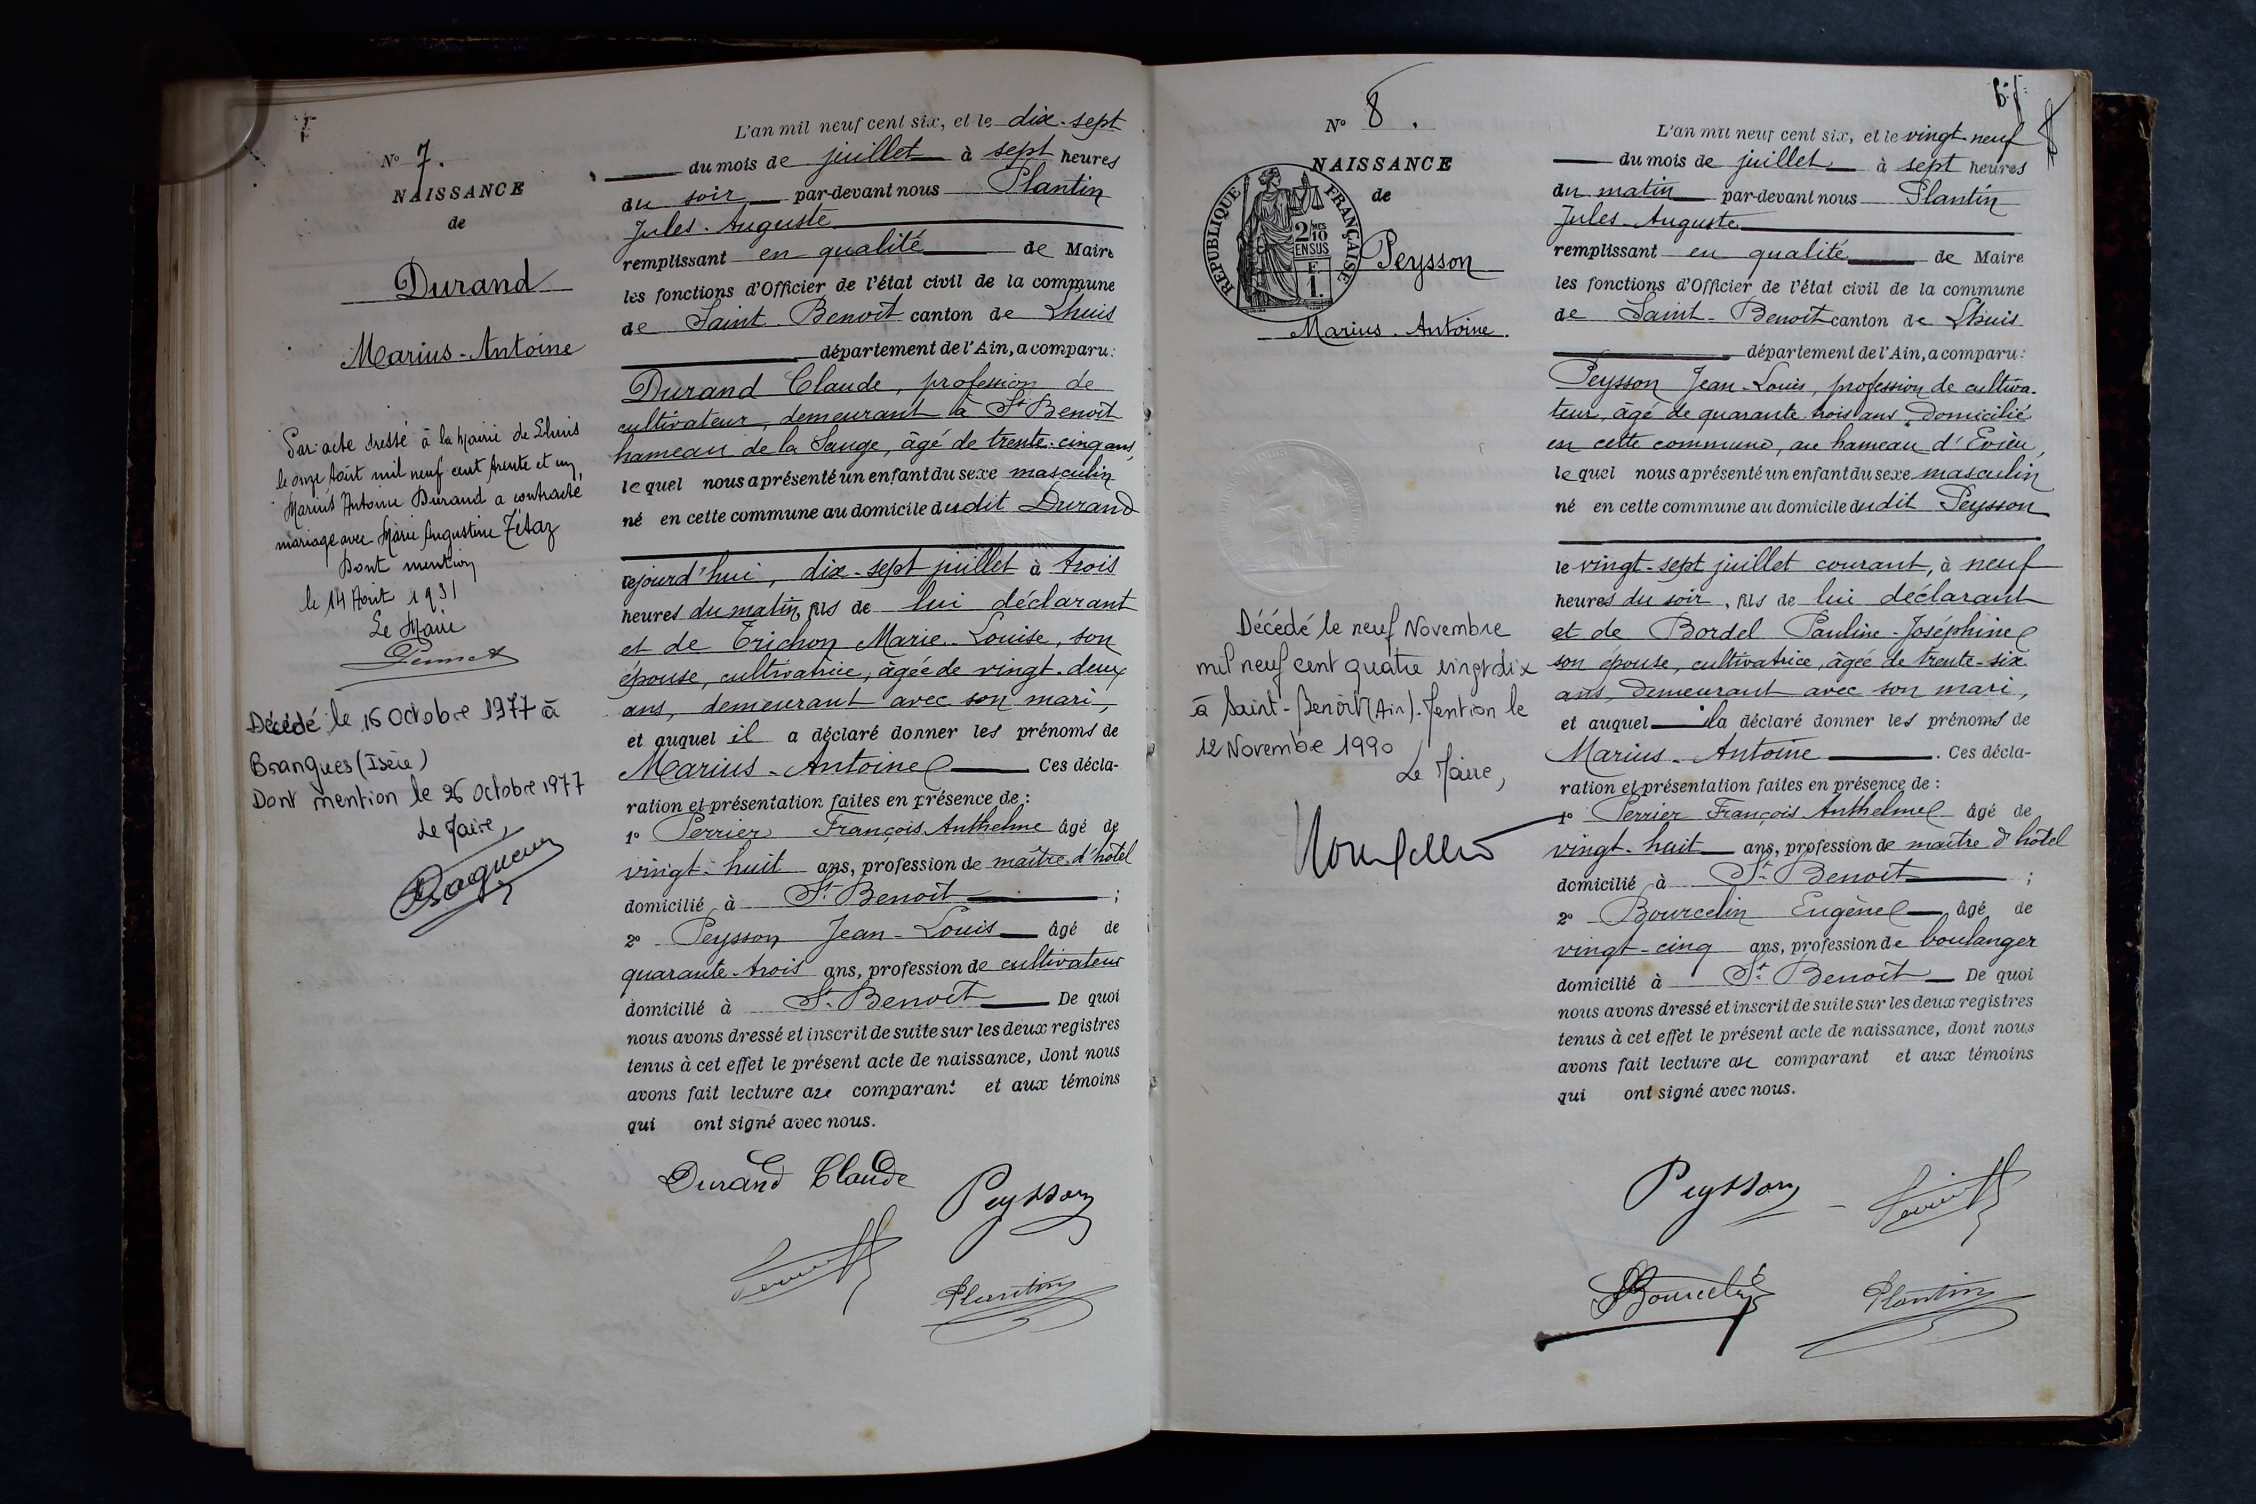 N° 7.
NAISSANCE
de
Durand
Marius-Antoine
Par acte dressé à la Mairie de Lhuis
le onze Août mil neuf cent trente et un,
Marius Antoine Durand a contracté
mariage avec Marie Augustine Tétaz
Dont mention
le 14 Août 1931
Le Maire
Décédé le 16 Octobre 1977 à
Brangues (Isère)
Dont mention le 26 Octobre 1977
Le Maire,
L'an mil neuf cent six, et le dix-sept
du mois de juillet à sept heures
du soir par-devant nous Plantin
Jules-Auguste
remplissant en qualité de Maire
les fonctions d'Officier de l'état civil de la commune
de Saint-Benoit canton de Lhuis
département de l'Ain, a comparu:
Durand Claude, profession de
cultivateur, demeurant à St Benoit
hameau de la Sauge, âgé de trente-cinq ans,
lequel nous a présenté un enfant du sexe masculin
né en cette commune au domicile dudit Durand
cejourd'hui, dix-sept juillet à trois
heures du matin, fils de lui déclarant
et de Trichon Marie-Louise, son
épouse, cultivatrice, âgée de vingt-deux
ans, demeurant avec son mari,
et auquel il a déclaré donner les prénoms de
Marius-Antoine Ces décla-
ration et présentation faites en présence de :
1° Perrier François Anthelme âgé de
vingt-huit ans, profession de maître d'hôtel
domicilié à St Benoit ;
2° Peysson Jean-Louis âgé de
quarante-trois ans, profession de cultivateur
domicilié à St Benoit De quoi
nous avons dressé et inscrit de suite sur les deux registres
tenus à cet effet le présent acte de naissance, dont nous
avons fait lecture au comparant et aux témoins
qui ont signé avec nous.
Durand Claude
Peysson
Plantin
N° 8.
NAISSANCE
de
REPUBLIQUE FRANÇAISE
2/10
EN SUS
F.
1.
Peysson
Marius-Antoine.
Décédé le neuf Novembre
mil neuf cent quatre vingt dix
à Saint-Benoît (Ain). Mention le
12 Novembre 1990
Le Maire,
L'an mil neuf cent six, et le vingt-neuf
du mois de juillet à sept heures
du matin par-devant nous Plantin
Jules-Auguste
remplissant en qualité de Maire
les fonctions d'Officier de l'état civil de la commune
de Saint-Benoit canton de Lhuis
département de l'Ain, a comparu:
Peysson Jean-Louis, profession de cultiva-
teur, âgé de quarante trois ans, domicilié
en cette commune, au hameau d'Evieu,
lequel nous a présenté un enfant du sexe masculin
né en cette commune au domicile dudit Peysson
le vingt-sept juillet courant, à neuf
heures du soir, fils de lui déclarant
et de Bordel Pauline-Joséphine
son épouse, cultivatrice, âgée de trente-six
ans, demeurant avec son mari,
et auquel il a déclaré donner les prénoms de
Marius-Antoine . Ces décla-
ration et présentation faites en présence de :
1° Perrier François Anthelme âgé de
vingt-huit ans, profession de maître d'hôtel
domicilié à St Benoit ;
2° Bourcelin Eugène âgé de
vingt-cinq ans, profession de boulanger
domicilié à St Benoit De quoi
nous avons dressé et inscrit de suite sur les deux registres
tenus à cet effet le présent acte de naissance, dont nous
avons fait lecture au comparant et aux témoins
qui ont signé avec nous.
Peysson
Plantin